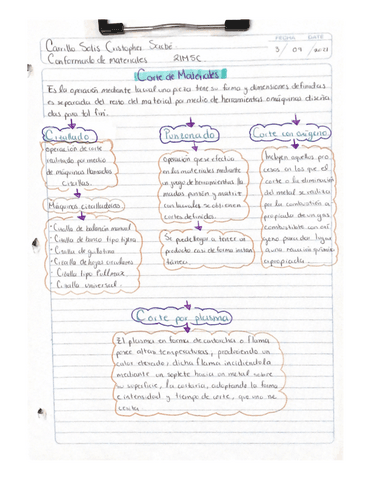 FECHA DATE
Carrillo Solis Cristopher
Conformado de materiales 2IM5C 3/ 09/
Corte de Materiales
Es la operación mediante la cual una pieza tiene su forma y dimensiones definidas
es separada del resto del material por medio de herramientas o máquinas diseña
das para tal fin.
Cizallado
Operación de corte
realizado por medio
de máquinas llamadas
cizallas.
Máquinas cizalladoras
• Cizalla de balancín manual
• Cizalla de banco tipo
• Cizalla de guillotina
• Cizalla de hojas circulares
• Cizalla tipo Pullmax
• Cizalla universal.
Punzonado
Operación que se efectua
en los materiales mediante
un juego de herramientas llama
das punzón y matriz
con las cuales se obtienen
cortes definidos.
Se puede llegar a tener un
producto casi de forma instan
tánea.
Corte con oxígeno
Incluyen aquellos pro
cesos en los que el
corte o la eliminación
del metal se realiza
por la combustión
apropiada de un gas
combustible con oxí
geno para dar lugar
a una reacción química
apropiada.
Corte por plasma
El plasma en forma de antorcha o flama
posee altas temperaturas, produciendo un
calor elevado, dicha flama incidiendola
mediante un soplete hacia un metal sobre
su superficie, lo cortaría, adaptando la forma
e intensidad y tiempo de corte, que uno ne
cesita.